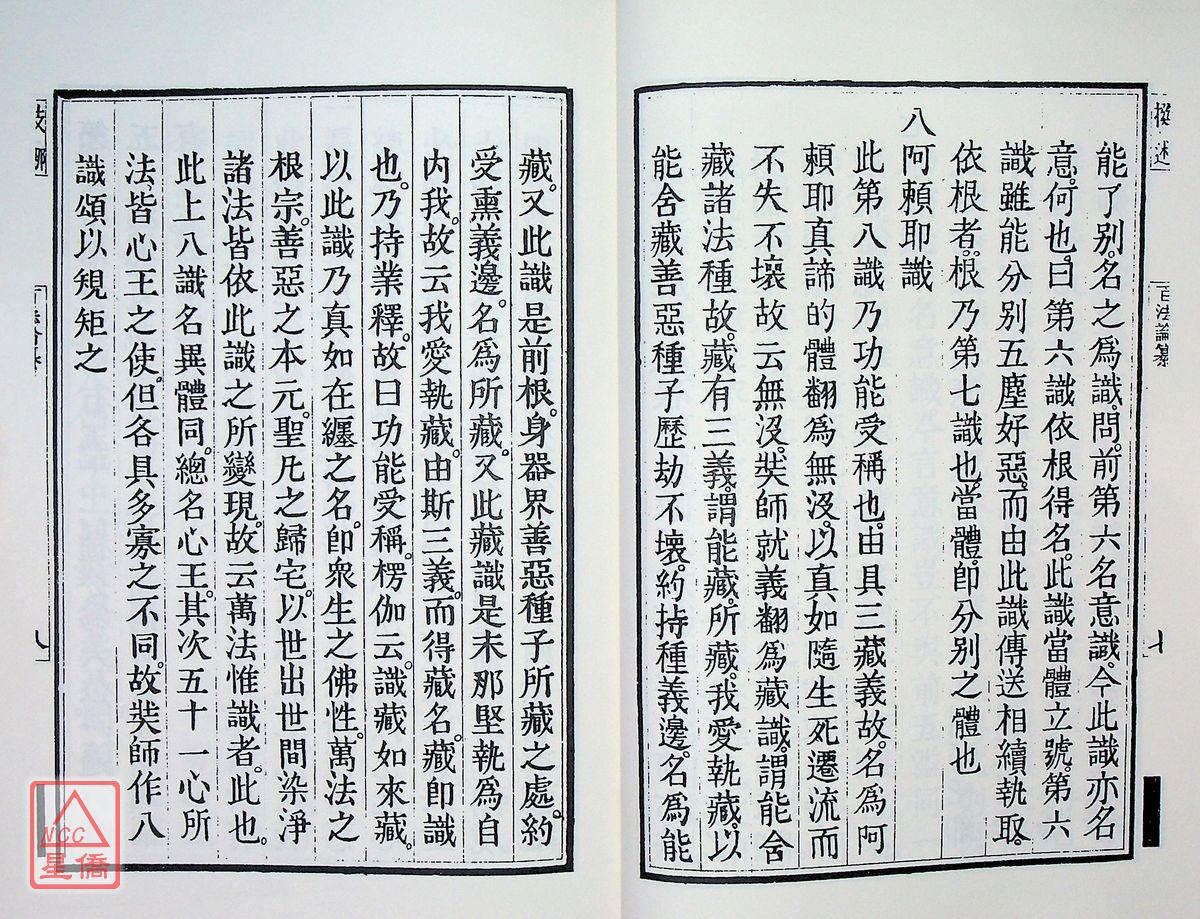 能了別。名之為識。問。前第六名意識。今此識亦名
意。何也。曰第六識依根得名。此識當體立號。第六
識雖能分別五塵好惡。而由此識傳送相續執取。
依根者。根乃第七識也。當體。即分別之體也
八阿賴耶識
此第八識乃功能受稱也。由具三藏義故。名為阿
賴耶真諦的體翻為無沒。以真如隨生死遷流而
不失不壞故云無沒。奘師就義翻為藏識。謂能舍
藏諸法種故。藏有三義。謂能藏。所藏。我愛執藏。以
能舍藏善惡種子歷劫不壞。約持種義邊。名為能
藏。又此識是前根。身器界善惡種子所藏之處。約
受熏義邊。名為所藏。又此藏識是末那堅執為自
內我。故云我愛執藏。由斯三義。而得藏名。藏即識
也。乃持業釋。故曰功能受稱。楞伽云。識藏如來藏。
以此識乃真如在纏之名。即衆生之佛性。萬法之
根宗。善惡之本元。聖凡之歸宅。以世出世間染淨
諸法皆依此識之所變現。故云萬法惟識者。此也。
此上八識名異體同。總名心王。其次五十一心所
法。皆心王之使。但各具多寡之不同。故奘師作八
識頌以規矩之
百法論纂
七
八
NCC
星僑